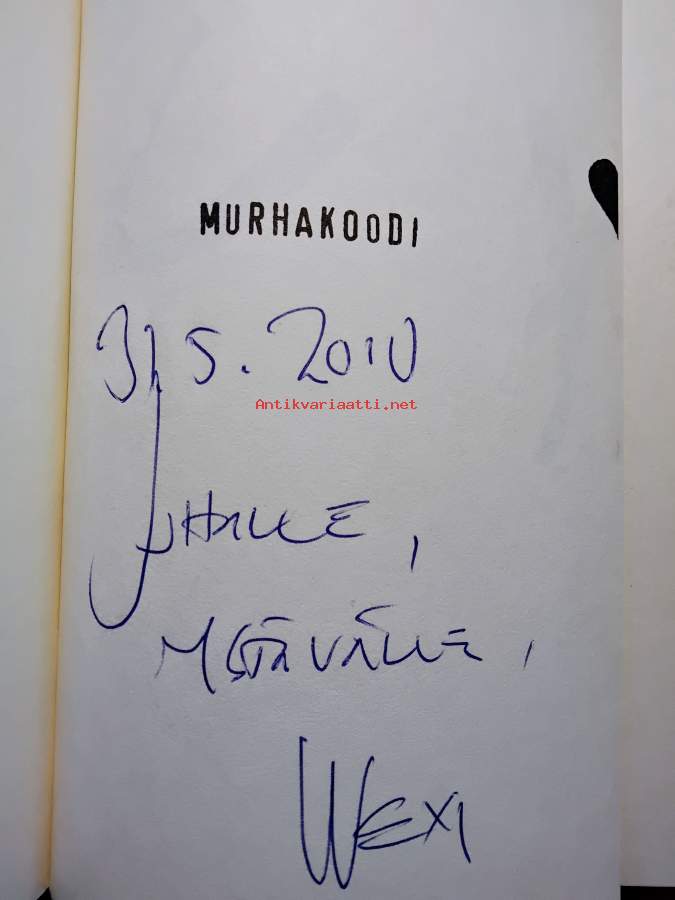 MURHAKOODI
31 5. 2010
Antikvariaatti.net
JUHALLE,
YSTÄVÄLLE,
WEXI